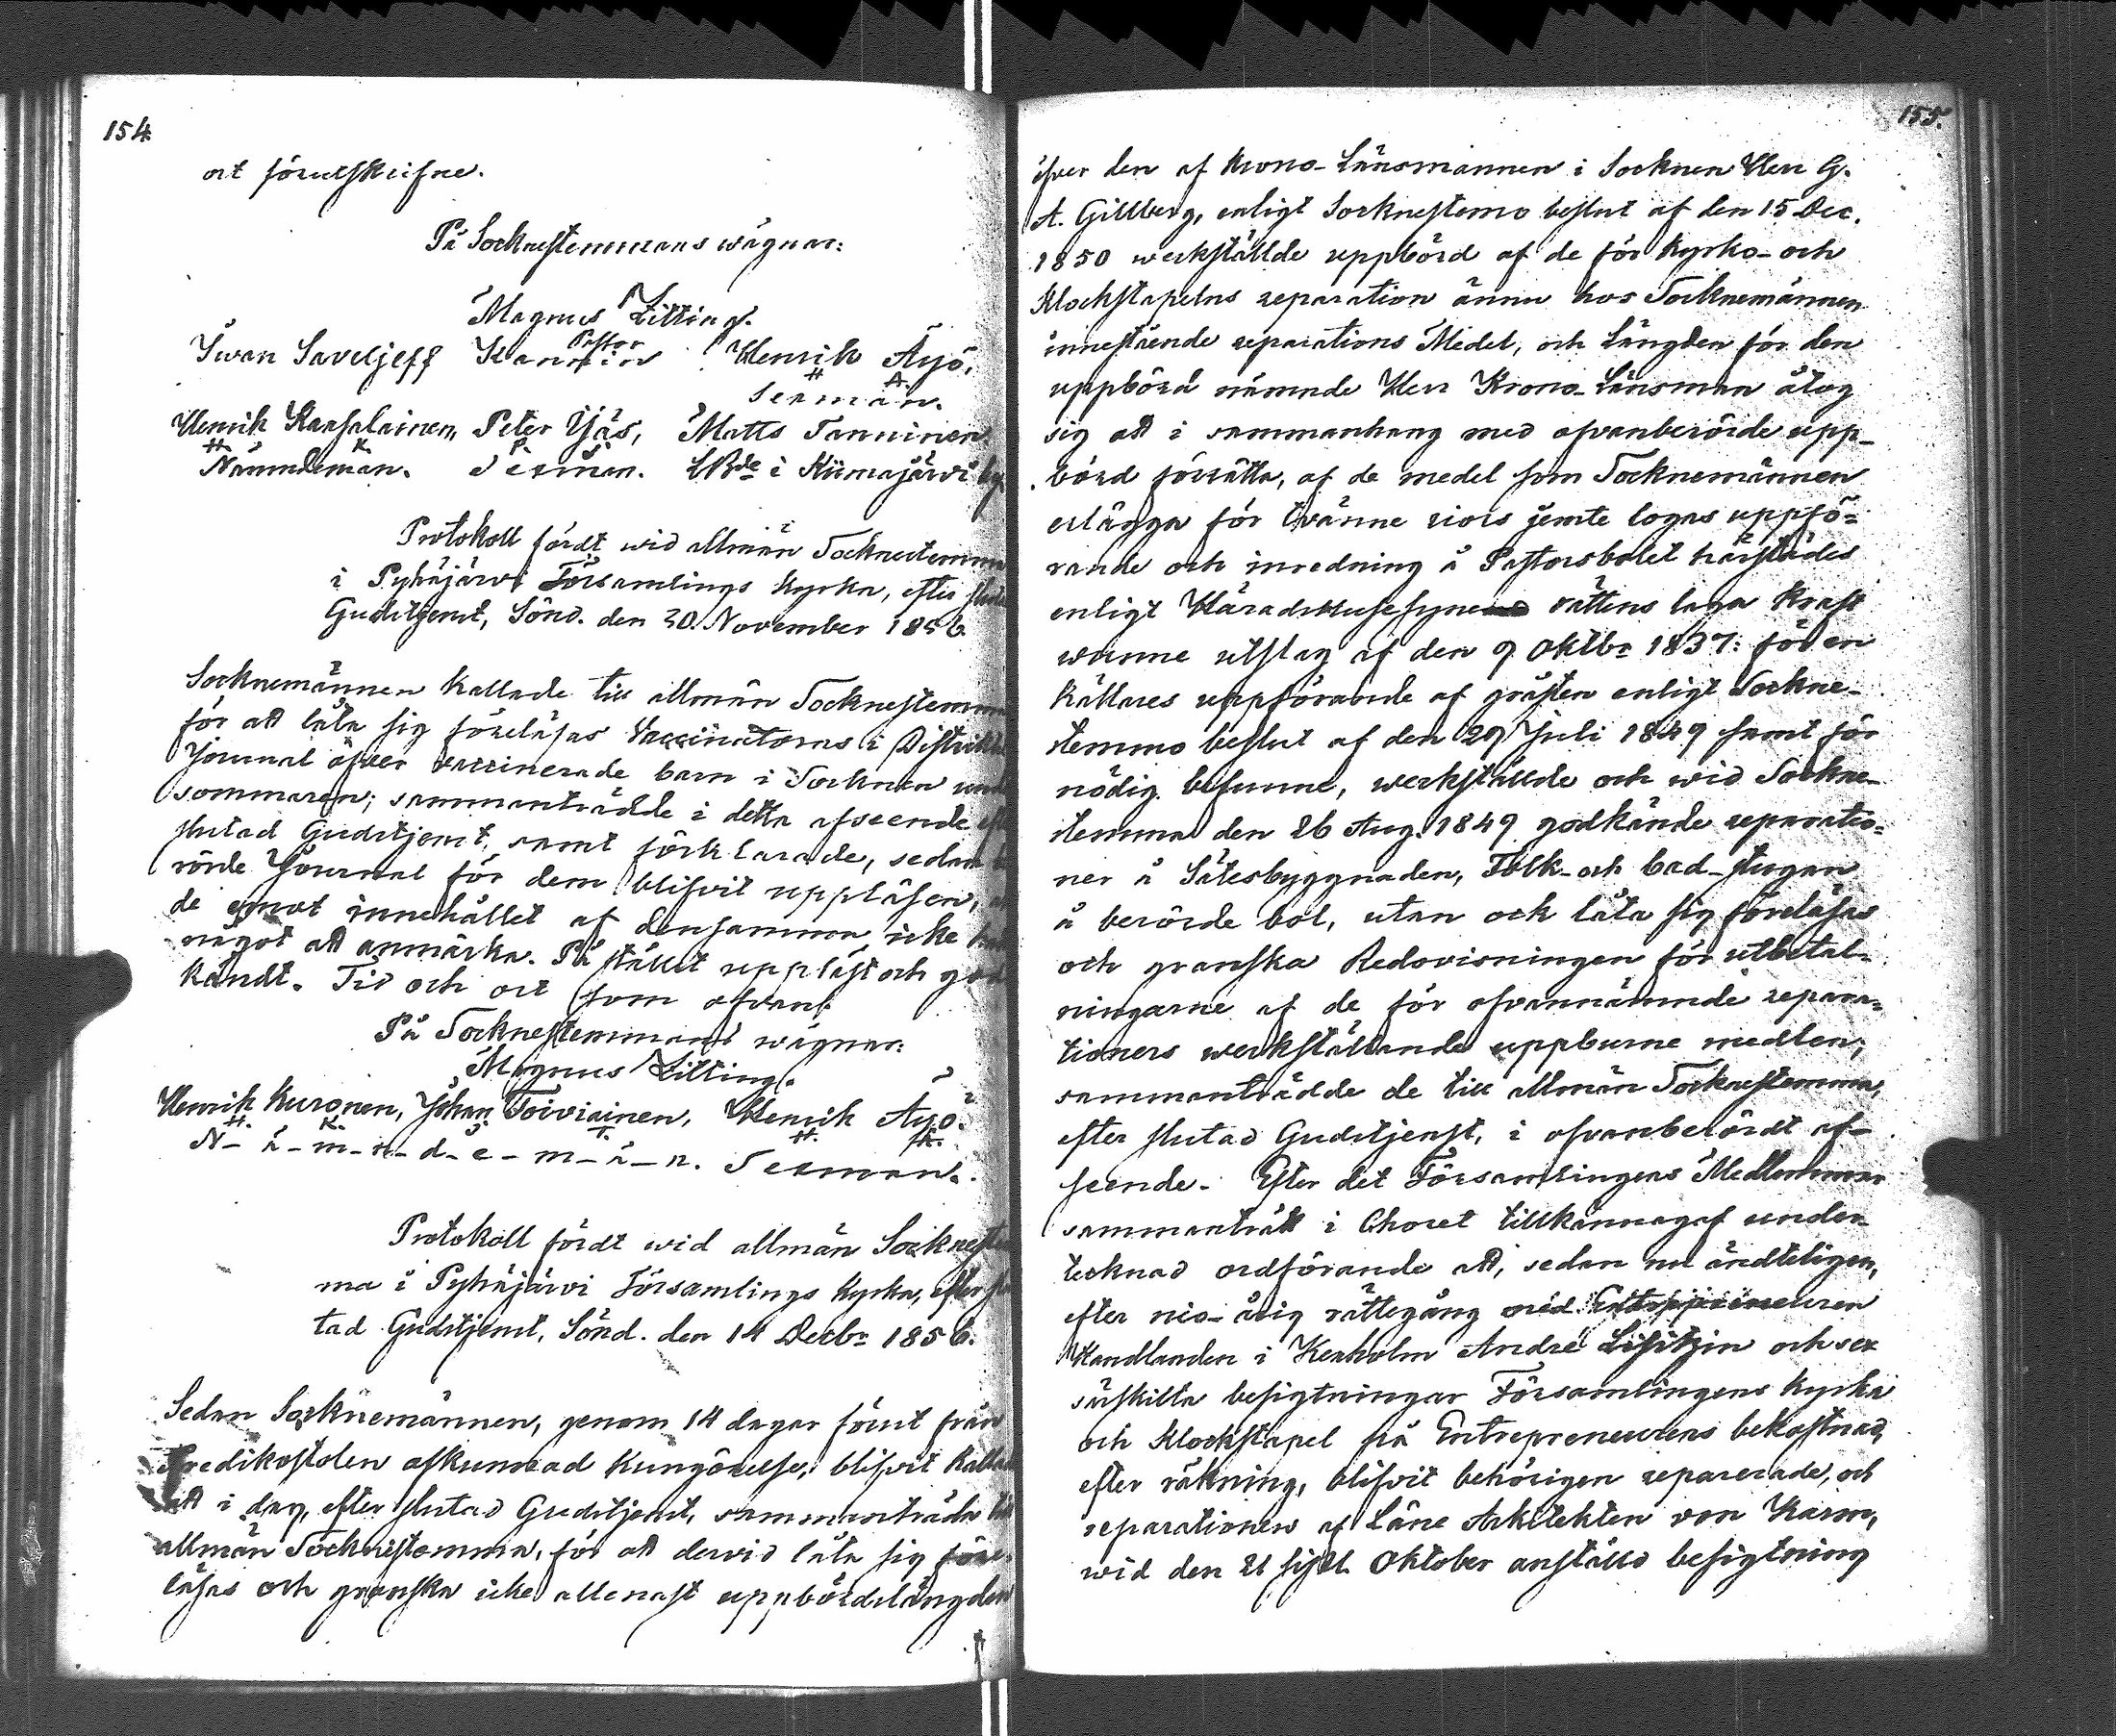 154.
ort förutskrifne.
På Socknestemmans wägnar:
Magnus Zitting.
Pastor
Iwan Saveljeff Kannin Henrik Äyö.
H Ä
Sexmän.
Henrik Karsalainen, Peter Yjäs, Matts Tanninen
H K P
Nämndeman. Sexman. LBde i Kiimajärvi by.
Protokoll fördt wid allmän Socknestemma
i Pyhäjärvi Församlings Kyrka, efter slutad
Gudstjenst, Sönd. den 30. November 1856.
Socknemännen kallade till allmän Socknestemma
för att låta sig föreläsas Vaccinatorns i Distriktet
Journal öfver vaccinerade barn i Socknen under
sommaren; sammanträdde i detta afseende efter
slutad Gudstjenst, samt förklarade, sedan be-
rörde Journal för dem blifvit uppläsen, att
de emot innehållet af densamma icke hade
något att anmärka. På stället uppläst och god-
kändt. Tid och ort som ofvan.
På Socknestemmans wägnar:
Magnus Zitting.
Henrik Kuronen, Johan Toiviainen, Henrik Äyö.
H. K. T. H. Ä.
N-ä-m-n-d-e-m-ä-n. Sexman.
Protokoll fördt wid allmän Socknestem-
ma i Pyhäjärvi Församlings Kyrka, efter slu-
tad Gudstjenst, Sönd. den 14 Decbr 1856.
Sedan Socknemännen, genom 14 dagar förut från
Predikostolen afkunnad Kungörelse, blifvit kallade
att i dag, efter slutad Gudstjenst, sammanträda till
allmän Socknestemma, för att dervid låta sig före-
läsas och granska icke allenast uppbördslängden
155.
öfver den af Krono-Länsmannen i Socknen Herr G.
A. Gillberg, enligt Socknestemmo beslut af den 15 Dec.
1850 werkställde uppbörd af de för Kyrko- och
Klockstapelns reparation ännu hos Socknemännen
innestående reparations Medel, och Längden för den
uppbörd nämnde Herr Krono-Länsman åtog
sig att i sammanhang med ofvanberörde upp-
börd förrätta, af de medel som Socknemännen
erlägga för tvänne riors jemte logas uppfö-
rande och inredning å Pastorsbolet härstädes
enligt Häradshusesyne rättens laga Kraft
wunne utslag af den 9 Oktbr 1837: för en
källares uppförande af gråsten enligt Sockne-
stemmo beslut af den 29 Juli 1849 samt för
nödig befunne, werkställde och wid Sockne-
stemma den 26 Aug. 1849 godkände reparatio-
ner å Sätesbyggnaden, Folk- och bad-stugan
å berörde bol, utan ock låta sig föreläsas
och granska Redovisningen för utbetal-
ningarne af de för ofvannämnde repara-
tioners werkställande uppburne medlen;
sammanträdde de till allmän Socknestemma,
efter slutad Gudstjenst, i ofvanberördt af-
seende. Efter det Församlingens Medlemmar
sammanträtt i Choret tillkännagaf under-
tecknad ordförande att, sedan nu ändteligen,
efter nio-årig rättegång med Entreprineuren
Handlanden i Kexholm Andre Lisitzin och sex
särskilta besigtningar Församlingens Kyrka
och Klockstapel på Entrepreneurens bekostnad,
efter räkning, blifvit behörigen reparerade, och
reparationen af Läne Arkitekten von Karm,
wid den 21 sistl. Oktober anställd besigtning